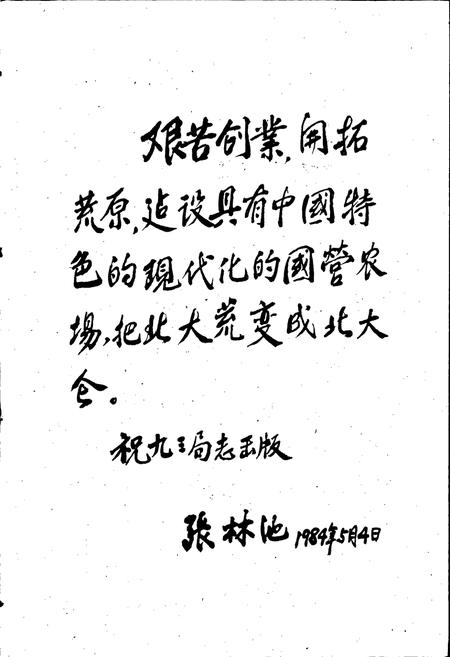 艰苦创業,開拓
荒原,建设具有中國特
色的現代化的國营农
場,把北大荒变成北大
仓。
祝九三局志出版
張林池 1984年5月4日